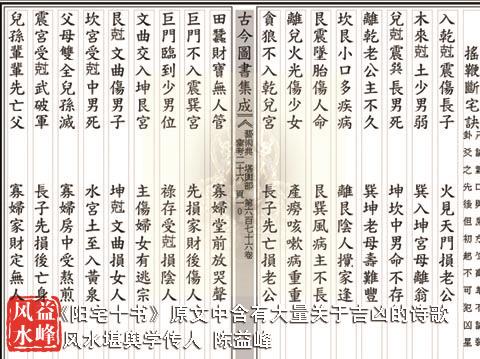 搖鞭斷宅訣
火見天門損老公
木來尅土少男弱
坤坎中男命不存
離乾老公主不久 巽坤老母壽難豐
坎艮小口多疾病 離艮陰人攪家逢
艮震墜胎傷人命 艮巽風病主不長
離兌火光傷少女 產癆咳嗽病重重
貪狼不入乾兌宮 長子先亡損老公
古今圖書集成
藝術典 堪輿部 第六百七十六卷
彙考二十六
田蠶財寶無人管 寡婦堂前放哭聲
巨門不入震巽宮 先損家財後傷人
巨門臨到少男位 祿存受尅損陰人
文曲交入坤艮宮 主傷婦女有逃宗
艮尅文曲傷男子 坤尅文曲損女人
坎宮受尅中男死 水宮土至入黃泉
父母雙全兒孫滅 寡婦房中受熬煎
震宮受尅武破軍 長子先損後亡身
兒孫輩輩先亡父 寡婦家財定無人
益峰风水
《阳宅十书》原文中含有大量关于吉凶的诗歌
风水堪舆学传人 陈益峰